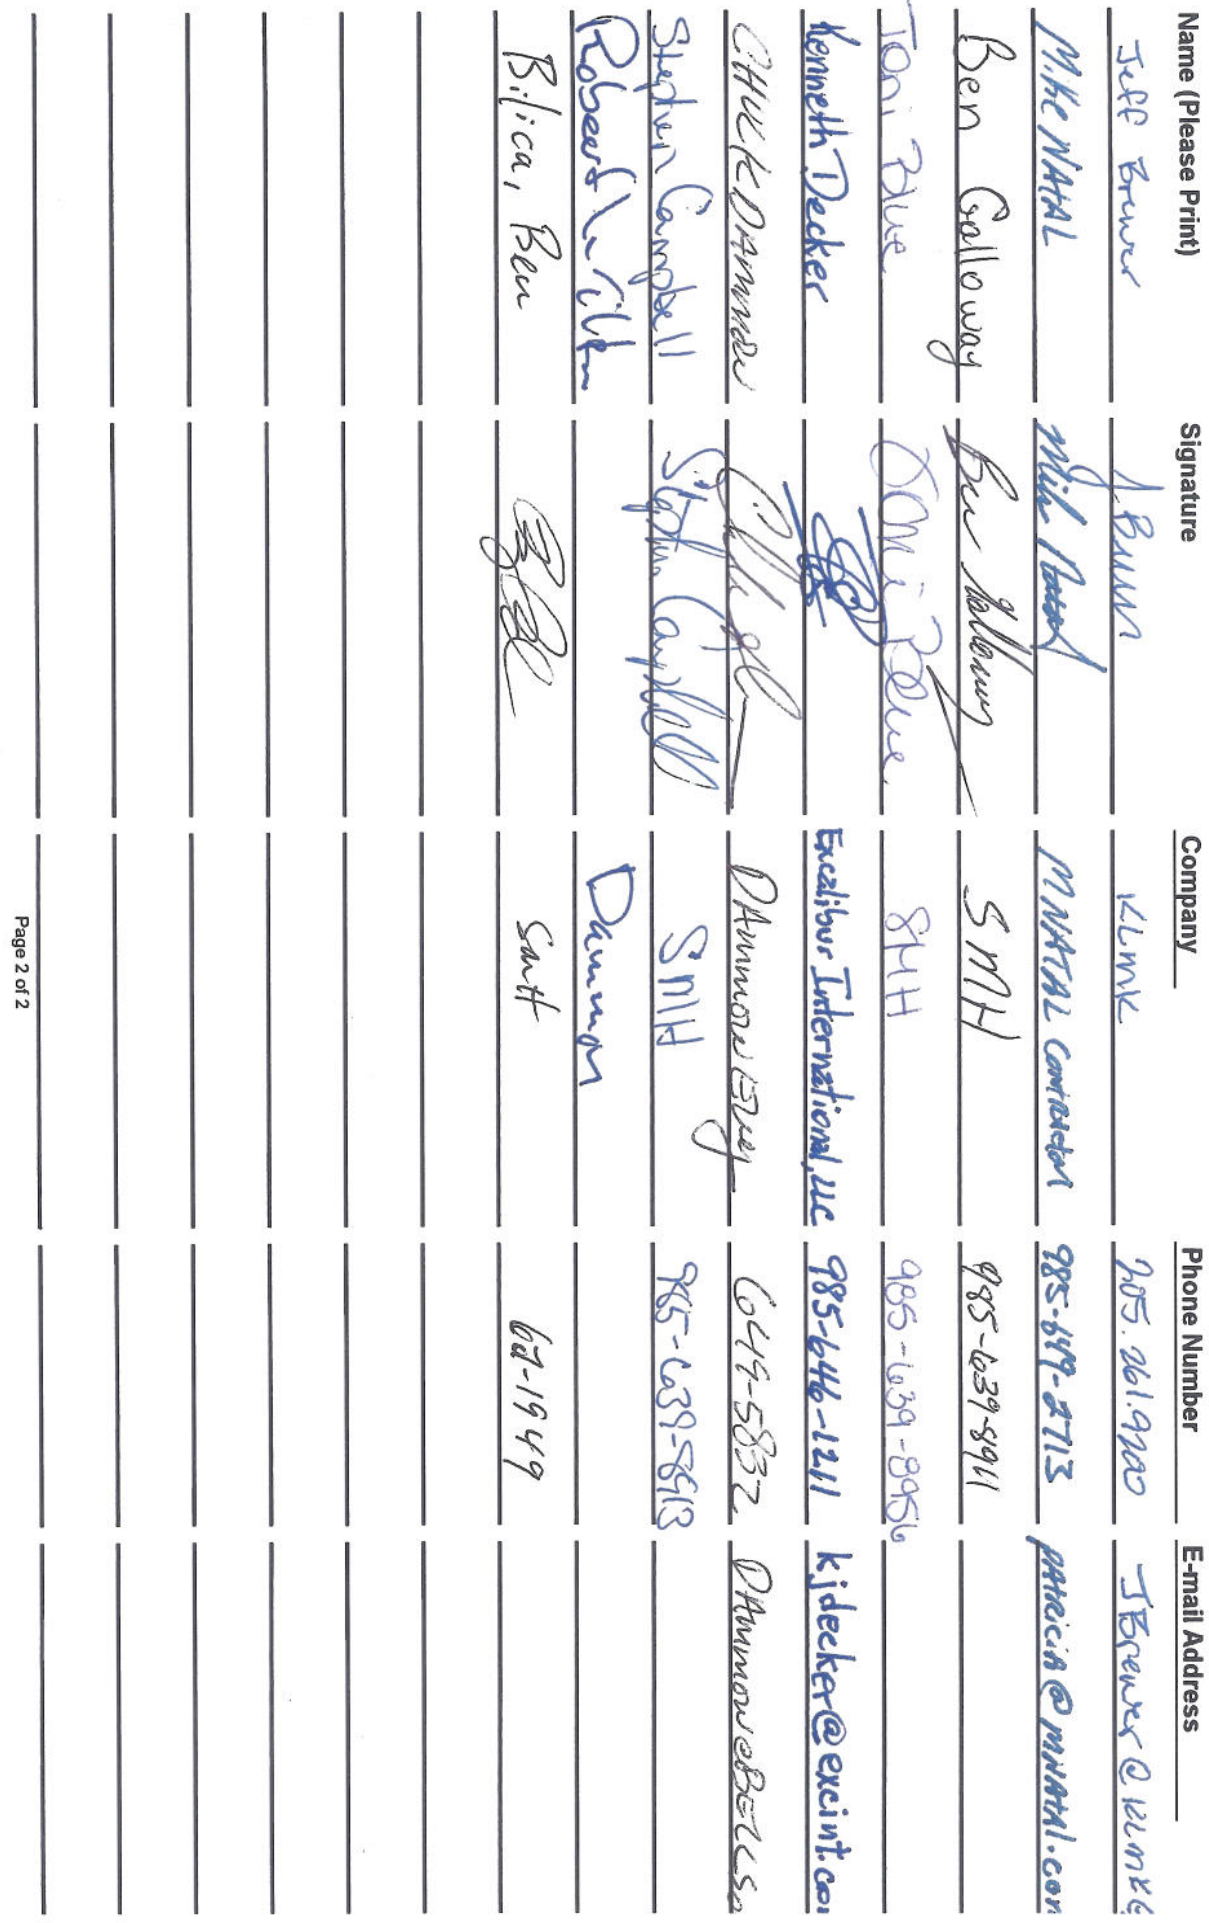 Name (Please Print) Signature Company Phone Number E-mail Address
Jeff Brewer J. Brewer KLMK 205.261.9200 JBrewer@KLMKG
Mike NATAL Mike Natal MNATAL Contractor 985-649-2713 PATRICIA@MNATAL.com
Ben Galloway Ben Galloway SMH 985-639-8911
Toni Blue Toni Blue SMH 985-639-8956
Kenneth Decker Excalibur International, LLC 985-646-1211 kjdecker@excint.co
CHUCK DAMMON DAMMON 649-5832 DAMMON@BELLSO
Stephen Campbell Stephen Campbell SMH
Robert Dammon
Bilica, Ben 62-1949
Page 2 of 2